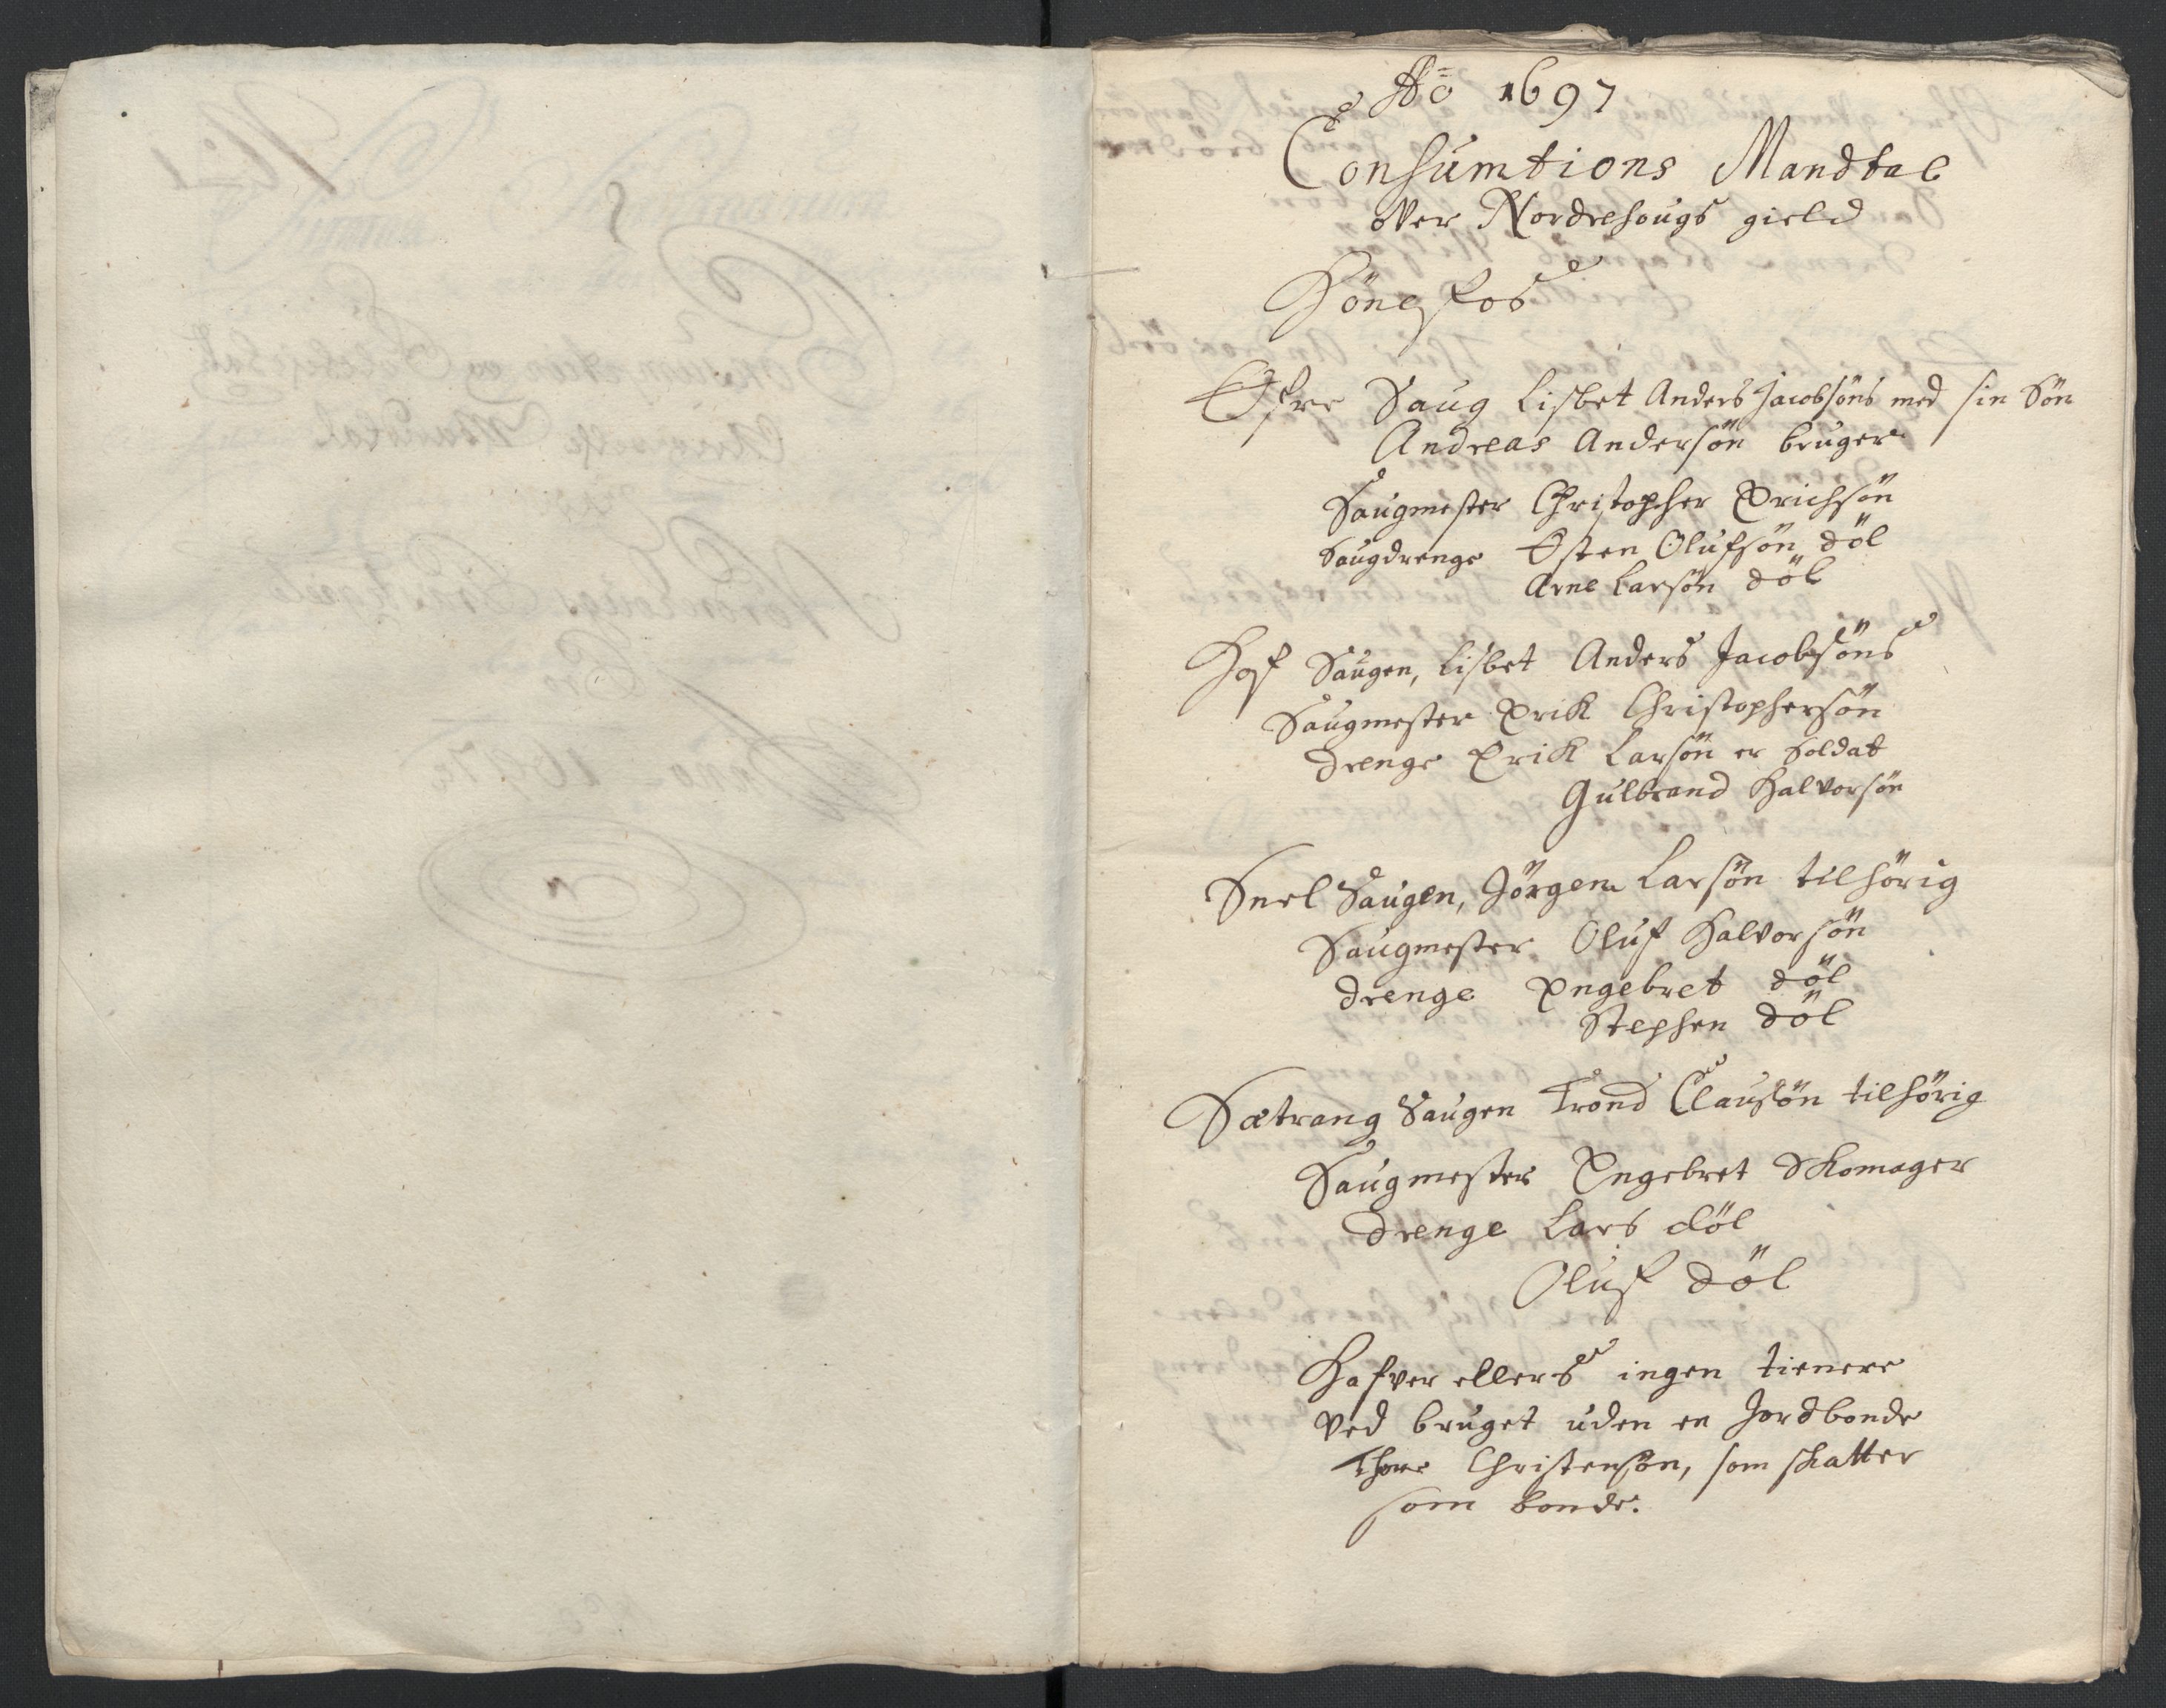 Ao 1697
Consumtions Mandtal
over Nordrehougs gield
Hönefos
Öfre Saug Lisbet Anders Jacobsöns med sin Sön
Andreas Andersön bruger
Saugmester Christopher Erichsön
Saugdrenge Östen Olufsön döl
Arne Larsön döl
Hof Saugen, Lisbet Anders Jacobsöns
Saugmester Erik Christophersön
drenge Erik Larsön er Soldat
Gulbrand Halvorsön
Snel Saugen, Jörgen Larsön tilhörig
Saugmester Oluf Halvorsön
drenge Engebret döl
Stephen döl
Sætrang Saugen Trond Clausön tilhörig
Saugmester Engebret Skomager
drenge Lars döl
Oluf döl
Hafver ellers ingen tienere
ved bruget uden en Jordbonde
Thore Christensön, som skatter
som bonde.